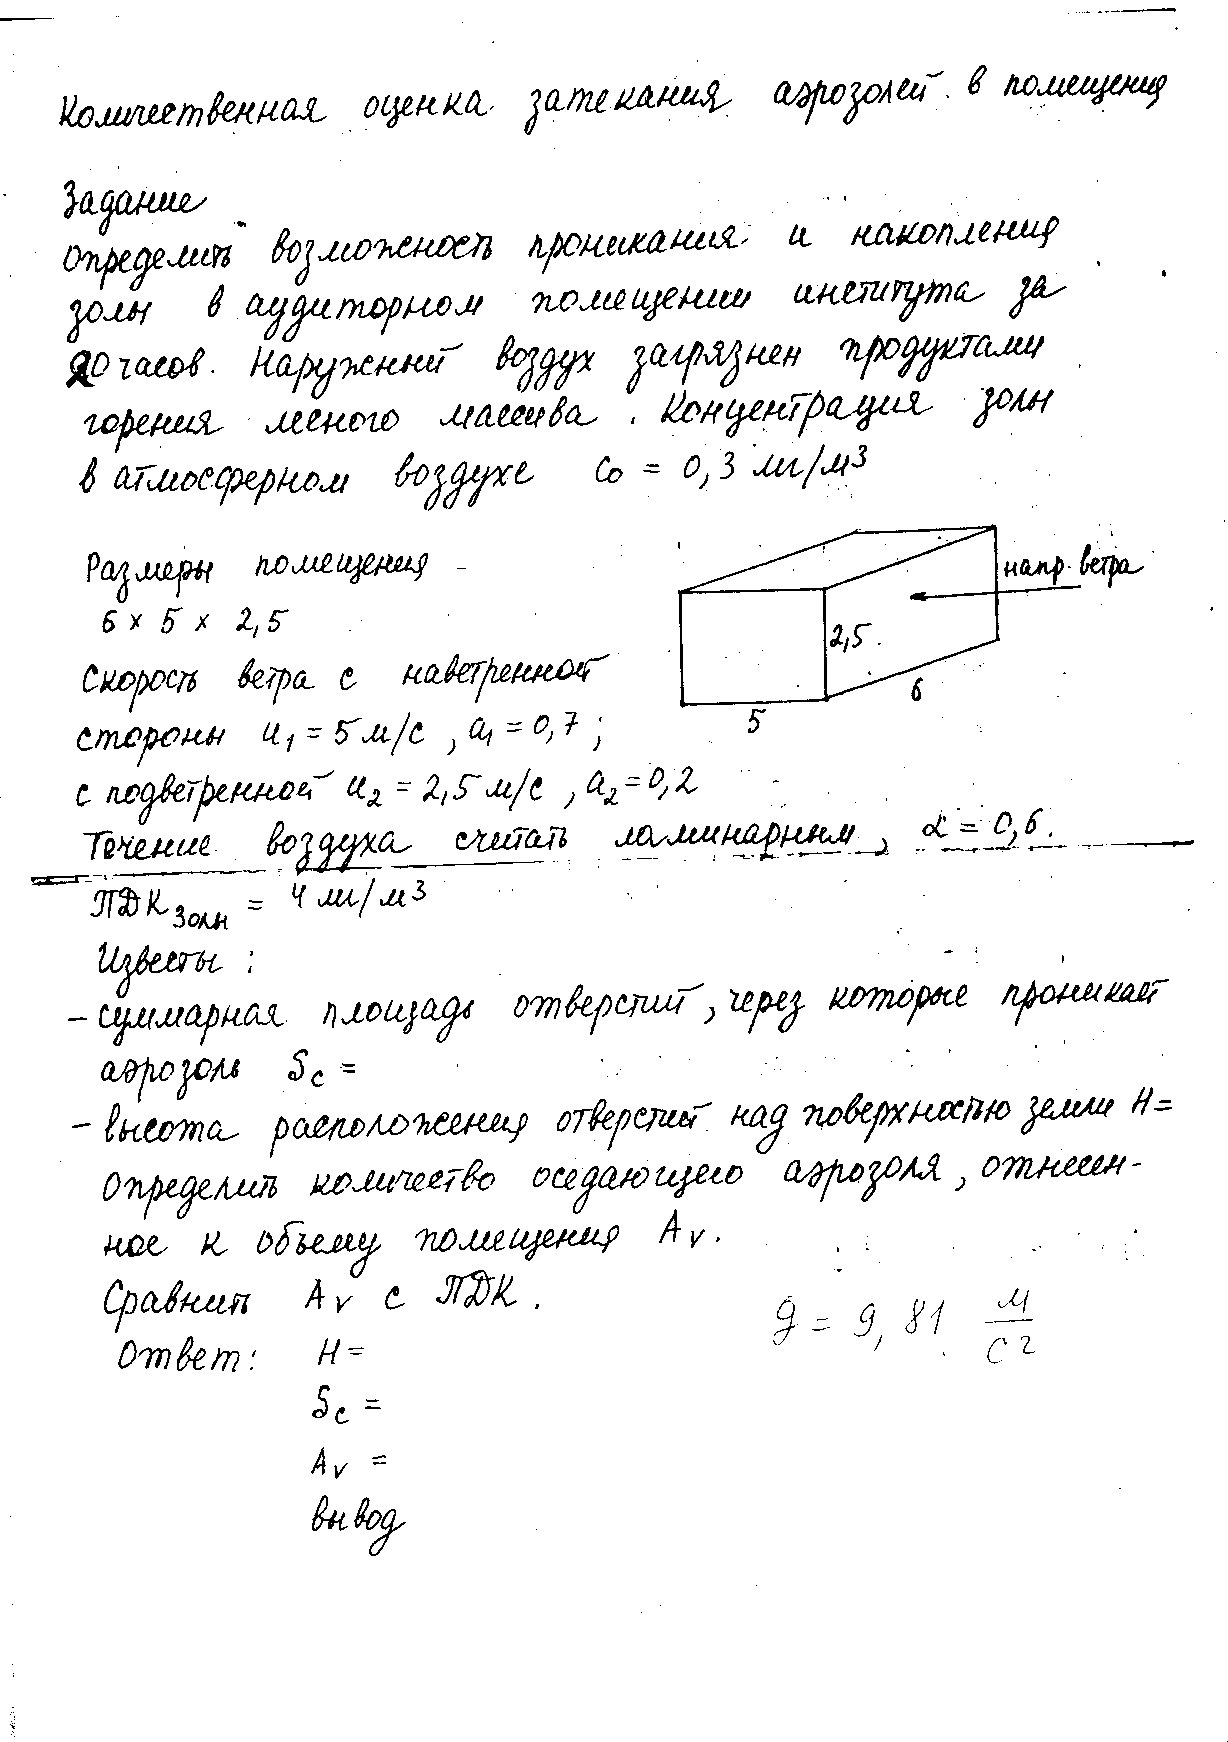 Количественная оценка затекания аэрозолей в помещения
Задание
Определить возможность проникания и накопления
золы в аудиторном помещении института за
20 часов. Наружный воздух загрязнен продуктами
горения лесного массива. Концентрация золы
в атмосферном воздухе C₀ = 0,3 мг/м³
Размеры помещения
6 × 5 × 2,5
напр. ветра
2,5
6
5
Скорость ветра с наветренной
стороны u₁ = 5 м/с, a₁ = 0,7;
с подветренной u₂ = 2,5 м/с, a₂ = 0,2
Течение воздуха считать ламинарным, α = 0,6.
ПДКзолы = 4 мг/м³
Известы:
- суммарная площадь отверстий, через которые проникает
аэрозоль Sc =
- высота расположения отверстий над поверхностью земли H =
Определить количество оседающего аэрозоля, отнесен-
ное к объему помещения Av.
Сравнить Av с ПДК.
g = 9,81 м/с²
Ответ: H =
Sc =
Av =
вывод